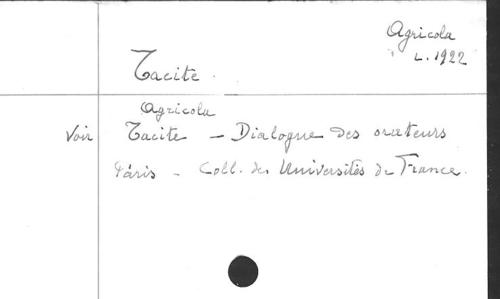 Agricola
L. 1922
Tacite.
Agricola
Voir Tacite - Dialogue des orateurs
Paris - Coll. des Universités de France.